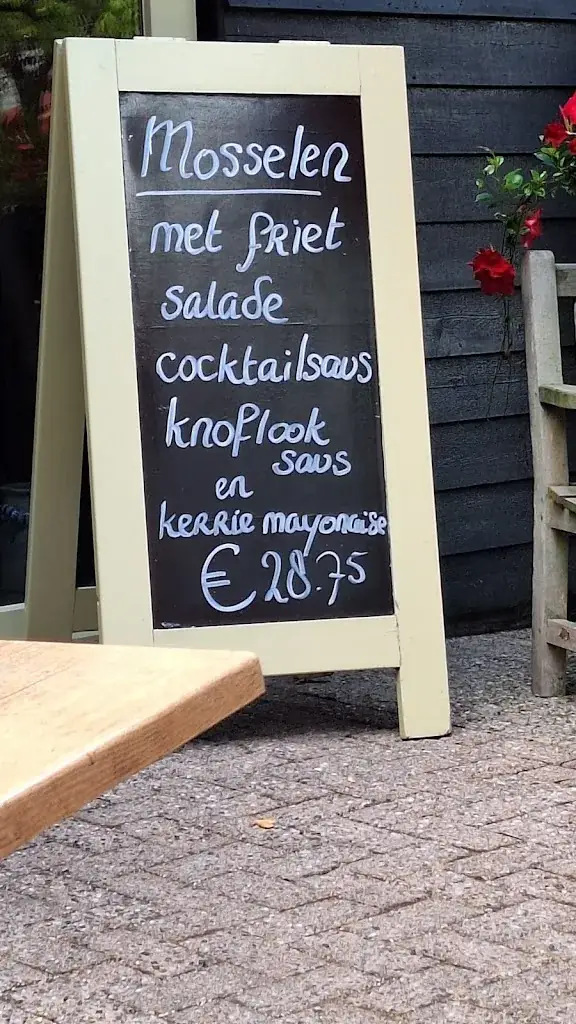 Mosselen
met friet
salade
cocktailsaus
knoflook
saus
en
kerrie mayonaise
€ 28.75